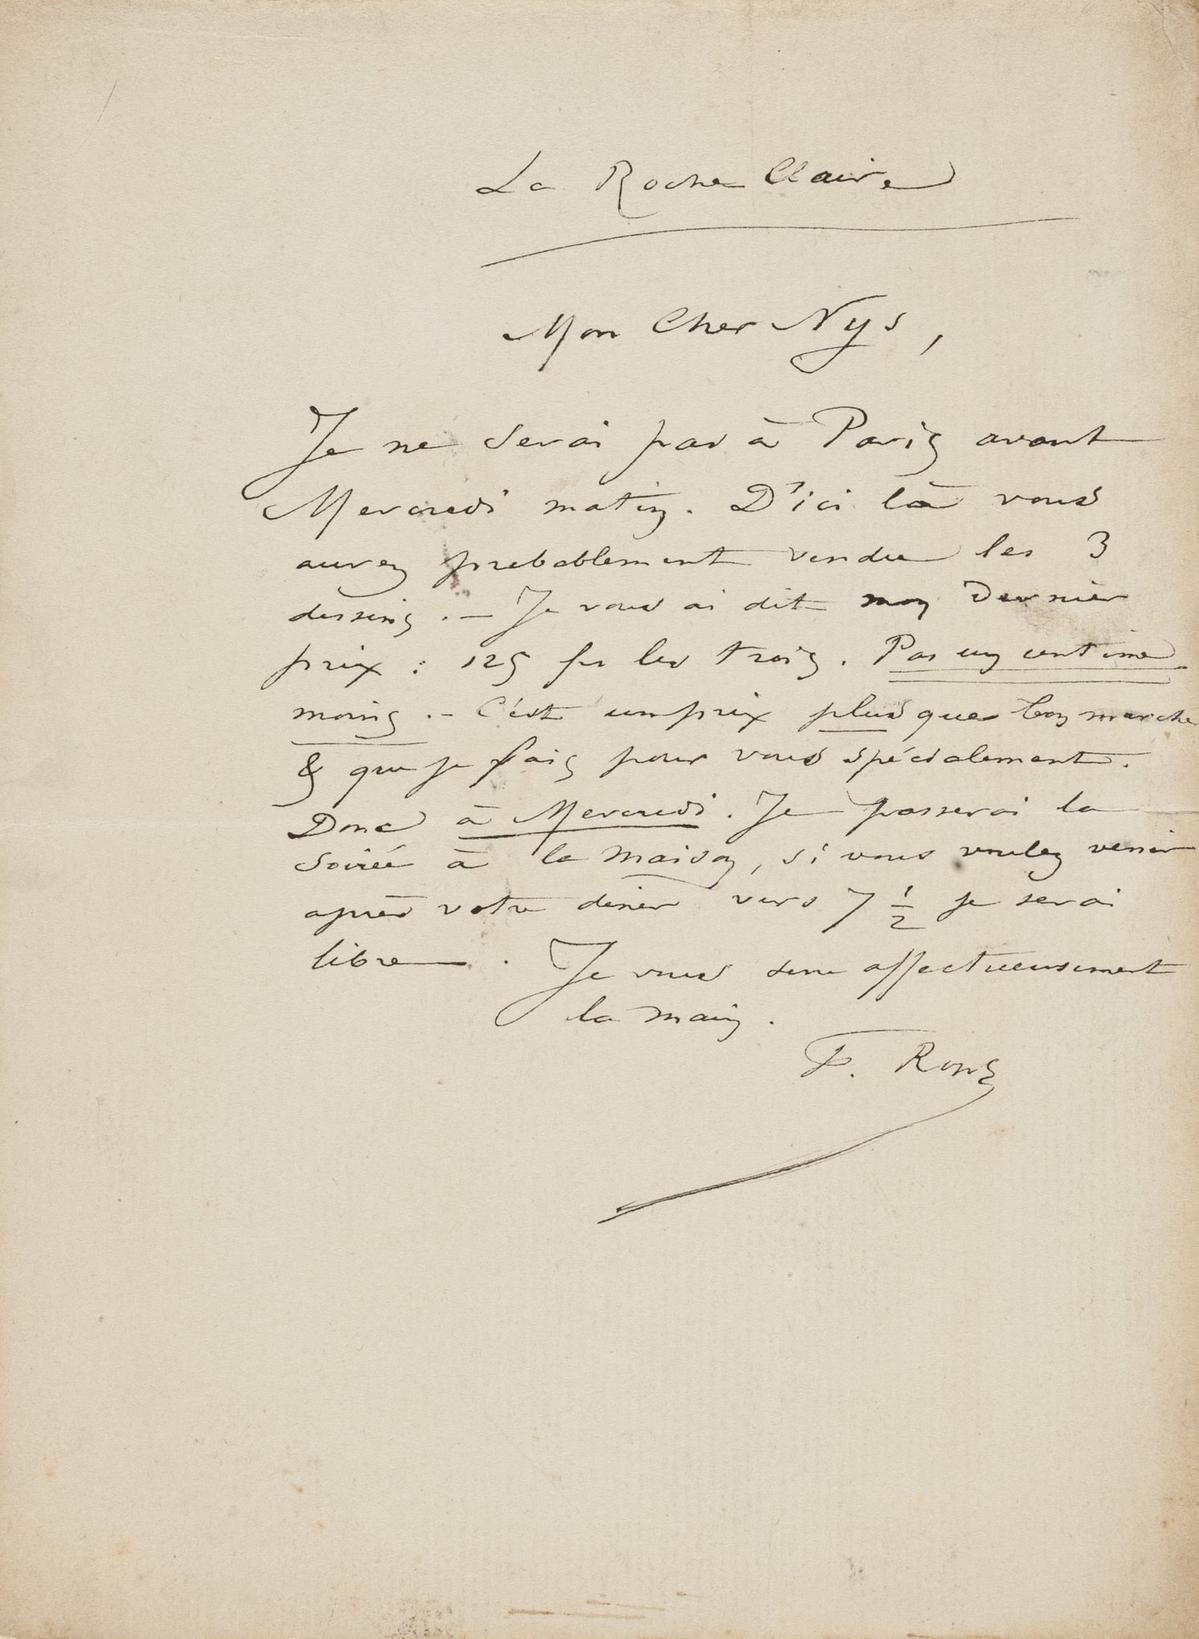 La Roche Claire
Mon Cher Nys,
Je ne serai pas à Paris avant
Mercredi matin. D'ici là vous
aurez probablement vendu les 3
dessins. — Je vous ai dit mon dernier
prix : 125 fr les trois. Pas un centime
moins. — C'est un prix plus que bon marché
& que je fais pour vous spécialement.
Donc à Mercredi. Je passerai la
soirée à la maison, si vous voulez venir
après votre diner vers 7 1/2 je serai
libre. Je vous serre affectueusement
la main.
F. Rops